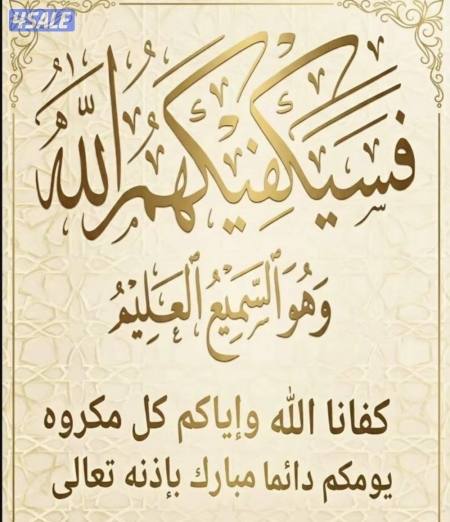 4SALE
فَسَيَكْفِيكَهُمُ اللَّهُ
وَهُوَ ٱلسَّمِيعُ ٱلْعَلِيمُ
كفانا الله وإياكم كل مكروه
يومكم دائما مبارك بإذنه تعالى